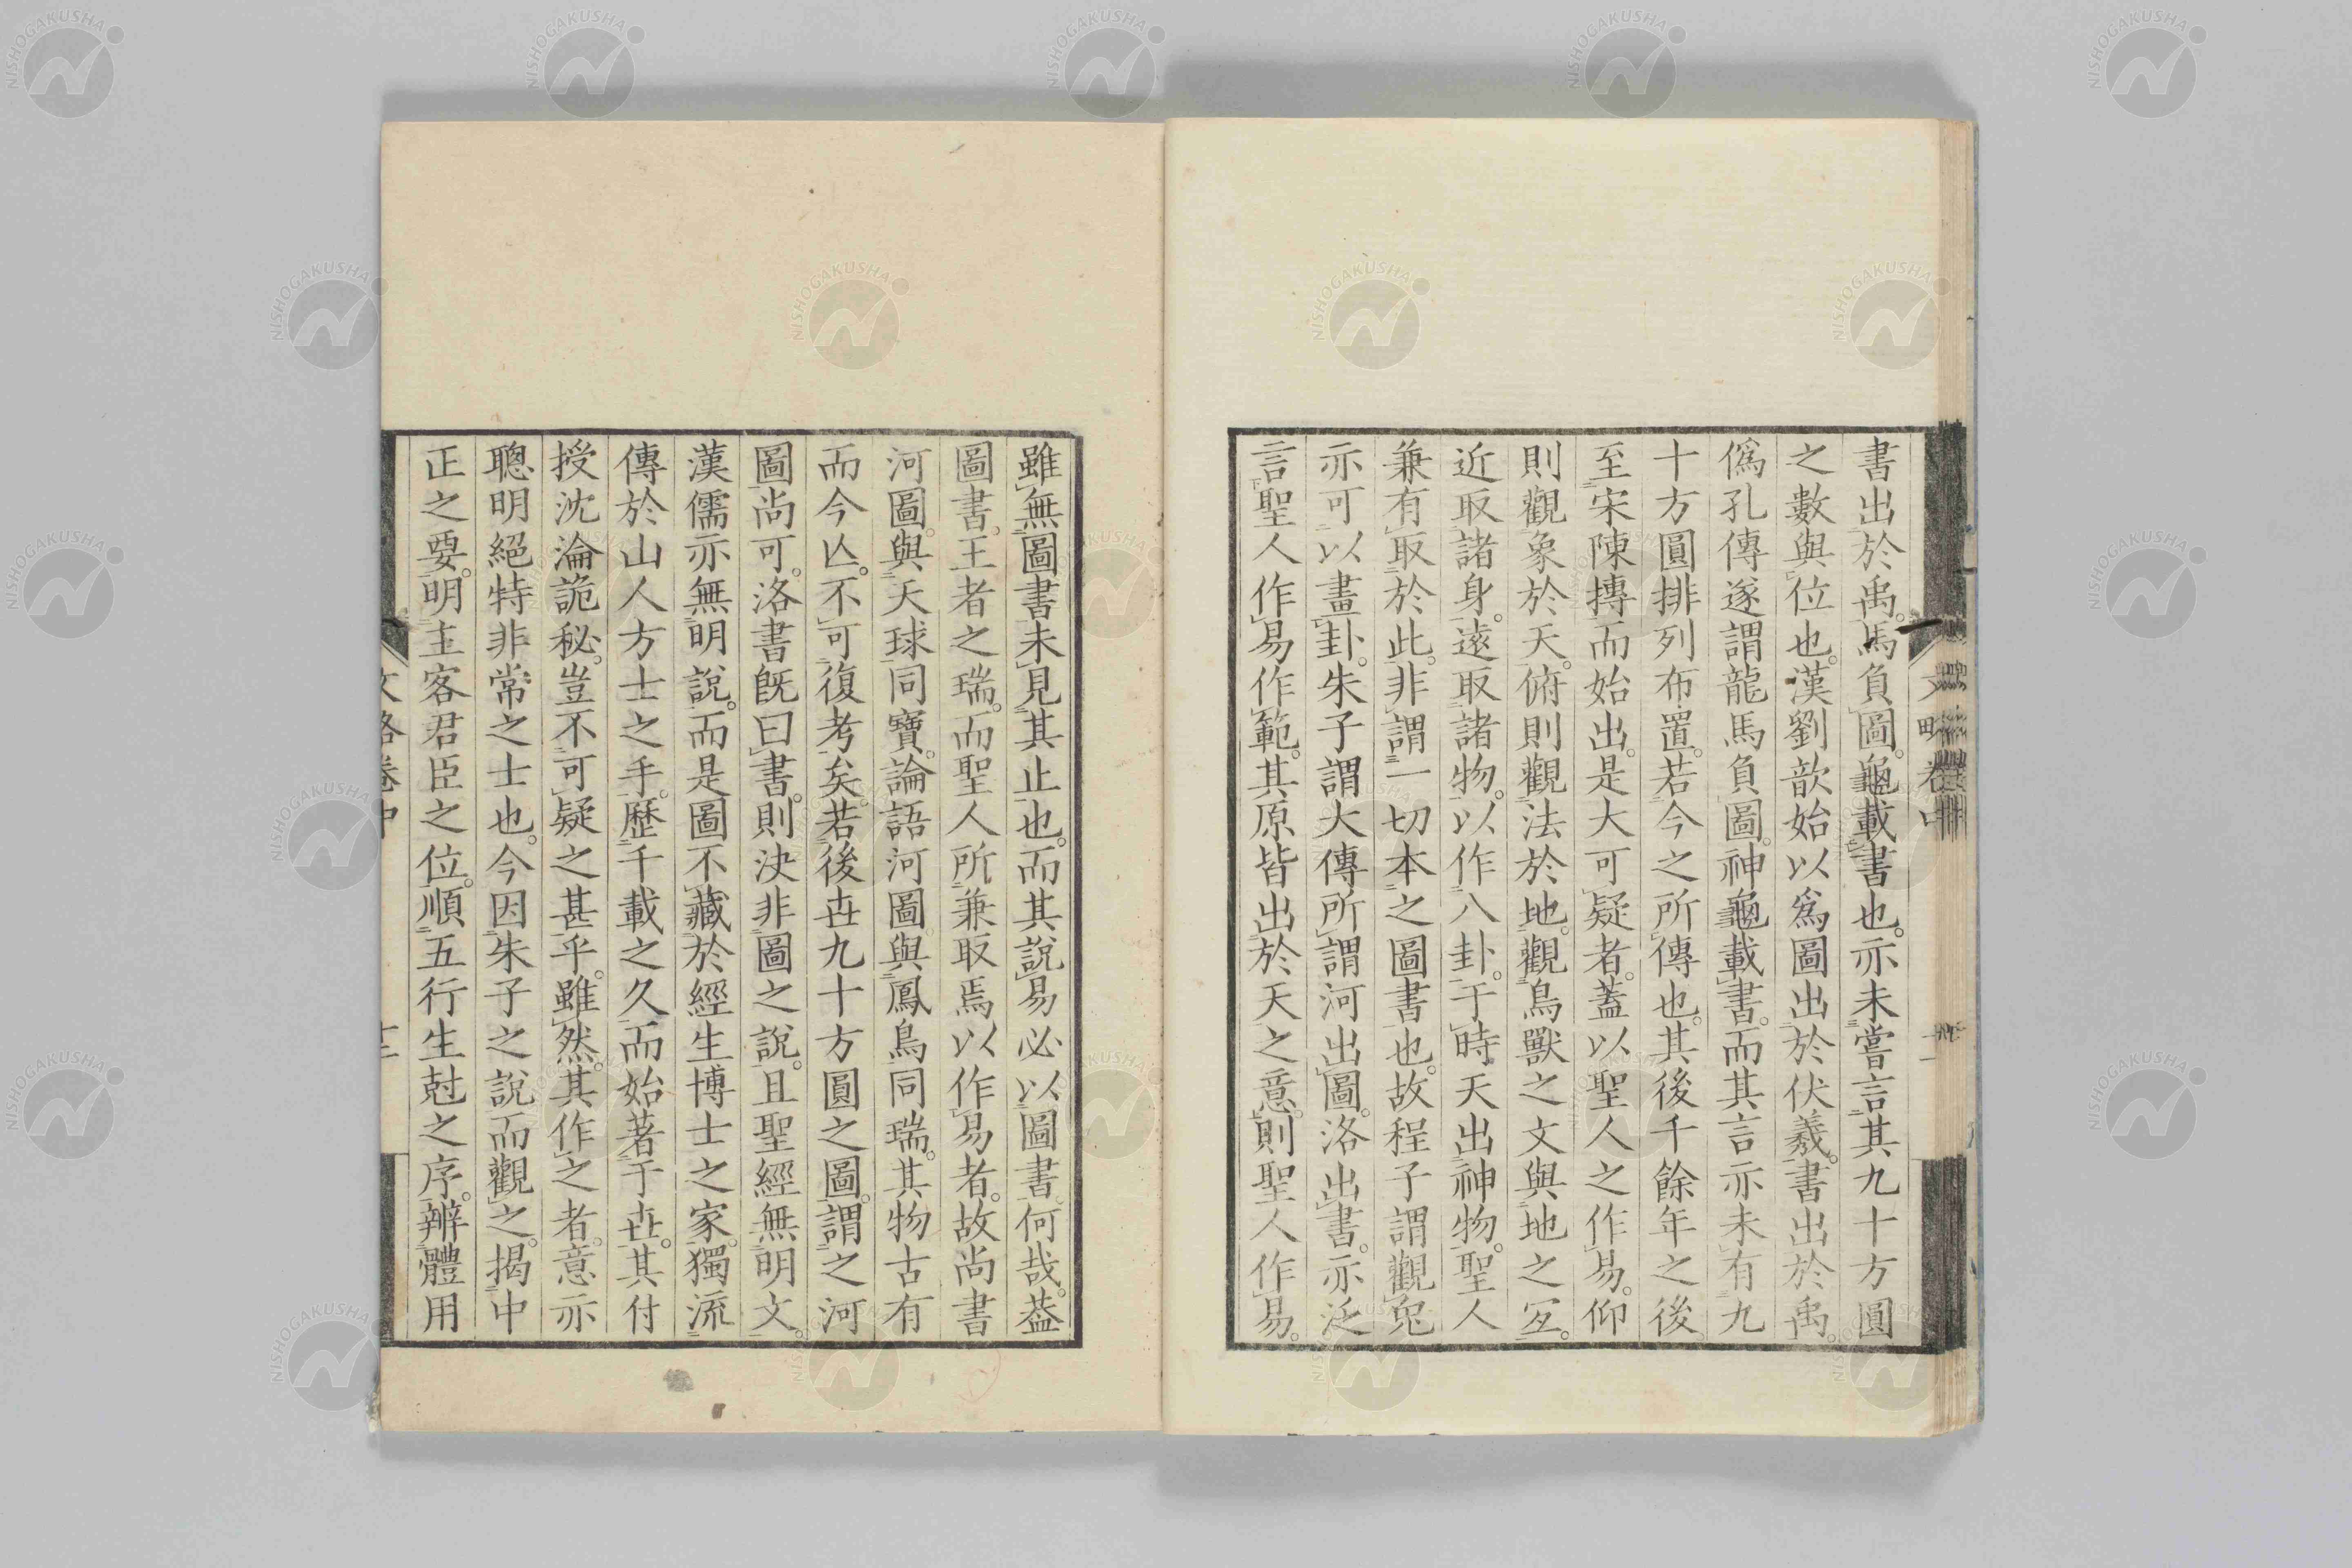 書出於禹。馬負圖。龜載書也。亦未嘗言其九十方圓
之數與位也。漢劉歆始以爲圖出於伏羲。書出於禹。
僞孔傳遂謂龍馬負圖。神龜載書。而其言亦未有九
十方圓排列布置。若今之所傳也。其後千餘年之後。
至宋陳摶而始出。是大可疑者。蓋以聖人之作易。仰
則觀象於天。俯則觀法於地。觀鳥獸之文與地之宜。
近取諸身。遠取諸物。以作八卦。于時天出神物。聖人
兼有取於此。非謂一切本之圖書也。故程子謂觀兔
亦可以畫卦。朱子謂大傳所謂河出圖。洛出書。亦泛
言聖人作易作範。其原皆出於天之意。則聖人作易。
雖無圖書未見其止也。而其說易必以圖書何哉。蓋
圖書。王者之瑞。而聖人所兼取焉以作易者。故尚書
河圖。與天球同寶。論語河圖與鳳鳥同瑞。其物古有
而今亾。不可復考矣。若後世九十方圓之圖。謂之河
圖尚可。洛書既曰書。則決非圖之說。且聖經無明文。
漢儒亦無明說。而是圖不藏於經生博士之家。獨流
傳於山人方士之手。歷千載之久而始著于世。其付
授沈淪詭秘。豈不可疑之甚乎。雖然。其作之者。意亦
聰明絕特非常之士也。今因朱子之說而觀之。揭中
正之要。明主客君臣之位。順五行生尅之序。辨體用
文略卷中
文略卷中
NISHOGAKUSHA